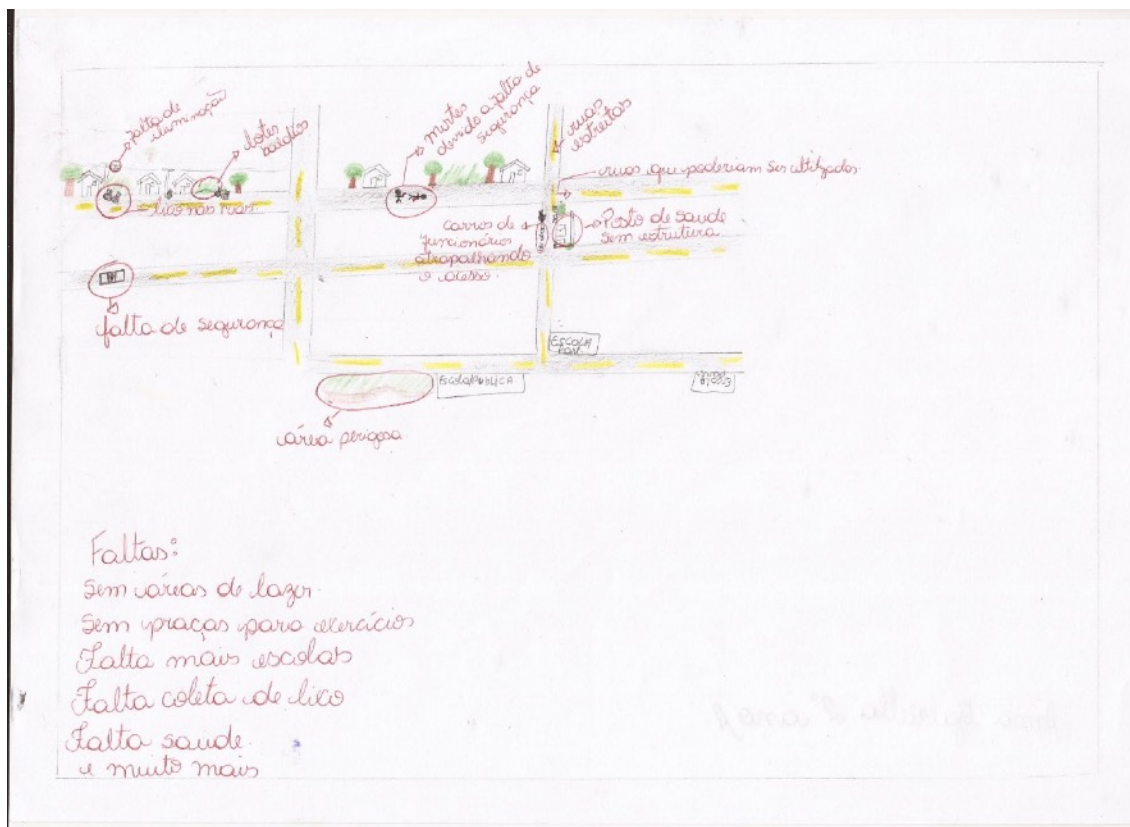 falta de
iluminação
lotes
baldios
mortes
devido a falta de
segurança
ruas
estreitas
ruas que poderiam ser utilizados
lixo nas ruas
carros de
funcionários
atrapalhando
o acesso.
Posto de saude
sem estrutura
falta de segurança
ESCOLA
ESCOLA PUBLICA
área perigosa
Faltas:
Sem áreas de lazer.
Sem praças para exercícios
Falta mais escolas
Falta coleta de lixo
Falta saúde.
e muito mais